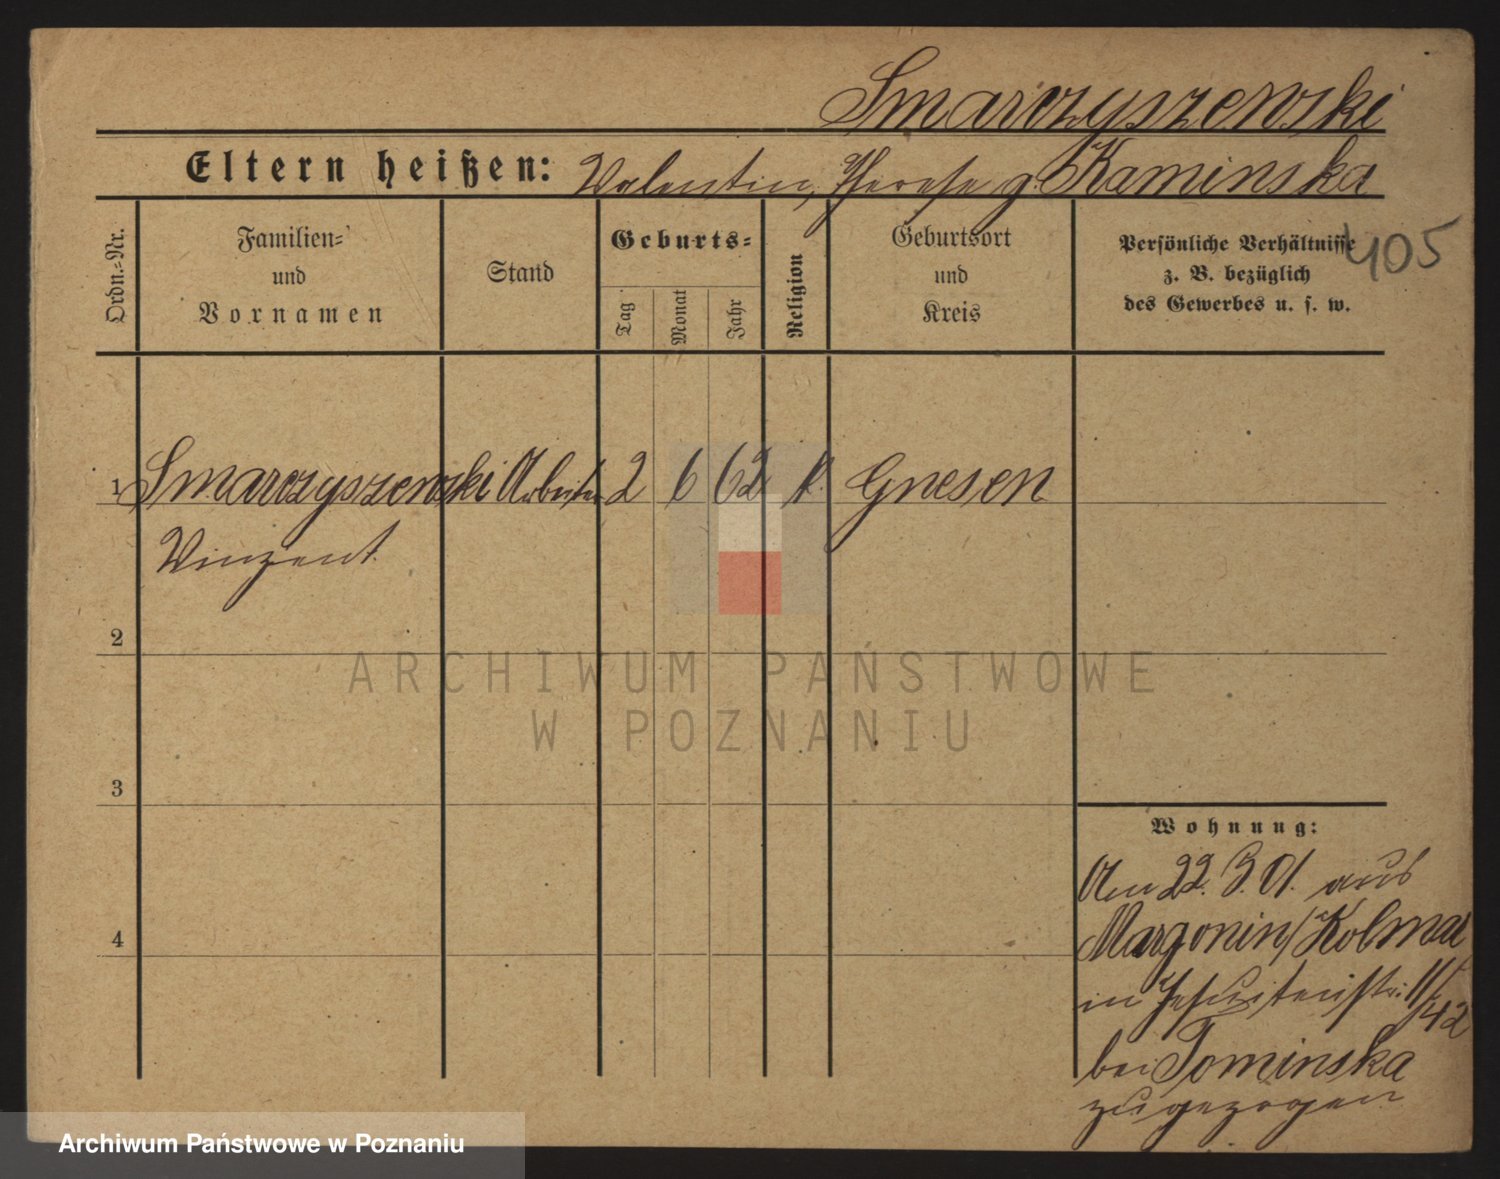 Smarczyszewski
Eltern heißen: Valentin, Therese g. Kaminska
405
Ordn.-Nr.
Familien-
und
Vornamen
Stand
Geburts-
Tag
Monat
Jahr
Religion
Geburtsort
und
Kreis
Persönliche Verhältnisse
z. B. bezüglich
des Gewerbes u. s. w.
1 Smarczyszewski Arbeiter 2 6 62 k. Gnesen
Vinzent
2
ARCHIWUM PAŃSTWOWE
W POZNANIU
3
Wohnung:
Am 22. 3. 01. aus
4
Margonin/Kolmar
in Jesuitenstr. 11/
42
bei Tominska
zugezogen
Archiwum Państwowe w Poznaniu